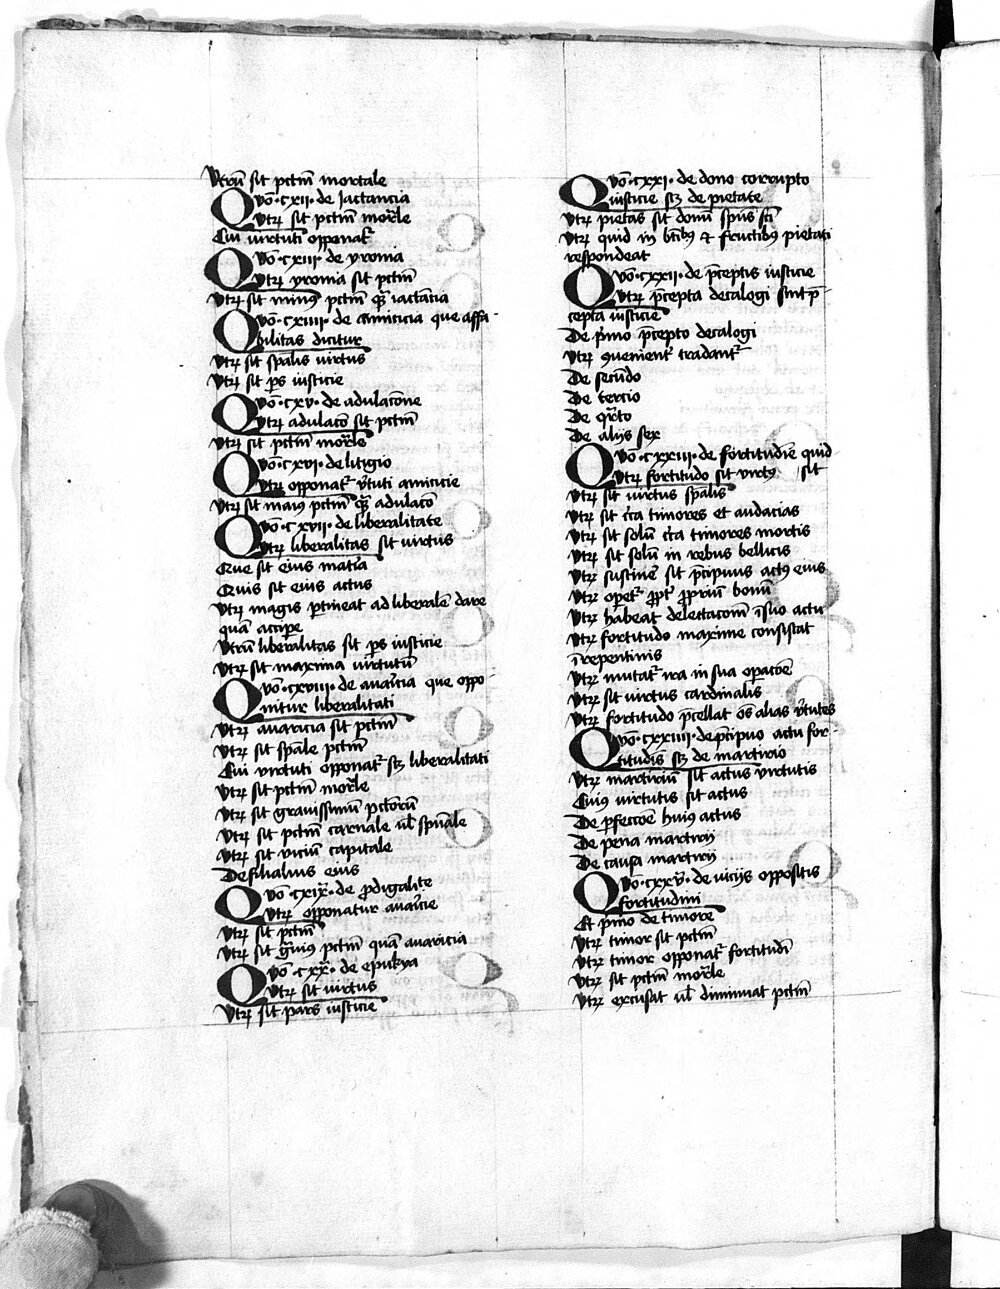 Vtrū sit pctm̄ mortale
Qvō·cxii· de Iactancia
Vtrꝫ sit pctm̄ mor̄le
Cui virtuti opponat᷑
Qvō·cxiii· de yronia
Vtrꝫ yronia sit pctm̄
Vtrꝫ sit minꝰ pctm̄ qᷓ iactācia
Qvō·cxiiii· de amicicia que affa-
bilitas dicitur
Vtrꝫ sit spālis virtus
Vtrꝫ sit ps̄ iusticie
Qvō·cxv· de adulacōne
Vtrꝫ adulacō sit pctm̄
Vtrꝫ sit pctm̄ mor̄le
Qvō·cxvi· de litigio
Vtrꝫ opponat᷑ v̄tuti amicicie
Vtrꝫ sit maiꝰ pctm̄ qᷓ adulacō
Qvō·cxvii· de liberalitate
Vtrꝫ liberalitas sit virtus
Que sit eius mat̄ia
Quis sit eius actus
Vtrꝫ magis p̱tineat ad liberalē dare
quā accip̱e
Vtrū liberalitas sit ps̄ iusticie
Vtrꝫ sit maxima virtutū
Qvō·cxviii· de auar̄cia que oppo-
nitur liberalitati
Vtrꝫ auaricia sit pctm̄
Vtrꝫ sit spāle pctm̄
Cui virtuti opponat᷑ sꝫ liberalitati
Vtrꝫ sit pctm̄ mor̄le
Vtrꝫ sit grauissimū pctōrū
Vtrꝫ sit pctm̄ carnale ul̄ spūale
Vtrꝫ sit viciū capitale
De filiabus eius
Qvō·cxix· de ꝓdigalite
Vtrꝫ opponatur auar̄cie
Vtrꝫ sit pctm̄
Vtrꝫ sit gᷓuius pctm̄ quā auaricia
Qvō·cxx· de epykya
Vtrꝫ sit virtus
Vtrꝫ sit pars iusticie
Qvō·cxxi· de dono corrupto
iusticie sꝫ de pietate
Vtrꝫ pietas sit donū spūs sc̄i
Vtrꝫ quid in bt̄ibꝰ et fructibꝰ pietati
respondeat
Qvō·cxxii· de p̄ceptis iusticie
Vtrꝫ p̄cepta decalogi sint p̄-
cepta iusticie
De p͛mo p̄cepto decalogi
Vtrꝫ ꝯuenient᷑ tradant᷑
De secūdo
De tercio
De qᷓrto
De alijs sex
Qvō·cxxiii· de fortitudīe quid
Vtrꝫ fortitudo sit virtꝰ sit
Vtrꝫ sit virtus spālis
Vtrꝫ sit cīca timores et audacias
Vtrꝫ sit solū cīca timores mortis
Vtrꝫ sit solū in rebus bellicis
Vtrꝫ sustinē sit p̄cipuus actꝰ eius
Vtrꝫ opet᷑ ꝓpt᷑ ꝓpriū bonū
Vtrꝫ habeat delectacōm ī suo actu
Vtrꝫ fortitudo maxime consistat
ī repentinis
Vtrꝫ vtat᷑ ira in sua opacōe
Vtrꝫ sit virtus cardinalis
Vtrꝫ fortitudo p̄cellat oēs alias v̄tutes
Qvō·cxxiiii· de p̄cipuo actu for-
titudīs sꝫ de martirio
Vtrꝫ martiriū sit actus virtutis
Cuiꝰ virtutis sit actus
De p̱feccōe huiꝰ actus
De pena martirij
De causa martirij
Qvō·cxxv· de vicijs oppositis
fortitudini
Et p͛mo de timore
Vtrꝫ timor sit pctm̄
Vtrꝫ timor opponat᷑ fortitudī
Vtrꝫ sit pctm̄ mor̄le
Vtrꝫ excusat ul̄ diminuat pctm̄